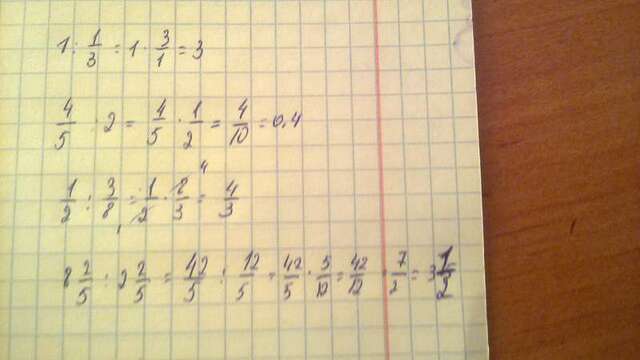 1 : 1/3 = 1 · 3/1 = 3
4/5 : 2 = 4/5 · 1/2 = 4/10 = 0,4
1/2 : 3/8 = 1/2 · 8/3 4 = 4/3
8 2/5 : 2 2/5 = 42/5 : 12/5 = 42/5 · 5/12 = 42/12 · 7/2 = 3 1/2